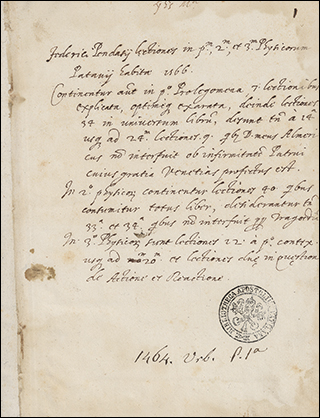 Federici Pendasij lectiones in pm, 2m, et 3m Physicorum
Patavij habitæ 1566.
Continentur aut in po Prolegomena 7 lectionibus
explicata, optimeq exarata, deinde lectiones
34 in universum librū, desunt tn a 14a
usq ad 24m lectiones q. qbus Almeri
cus nō interfuit ob infirmitatē Patrui
cuius gratia Venetias profectus est.
In 2o physicor continentur lectiones 40 qbus
totus liber, desiderantur tn
33a et 34a qbus nō interfuit
In 3o Physicor sunt lectiones 22 a po contex.
usq ad 20m et lectiones duæ in Quæstion
de Actione et Reactione
1464. Urb. P. Ia